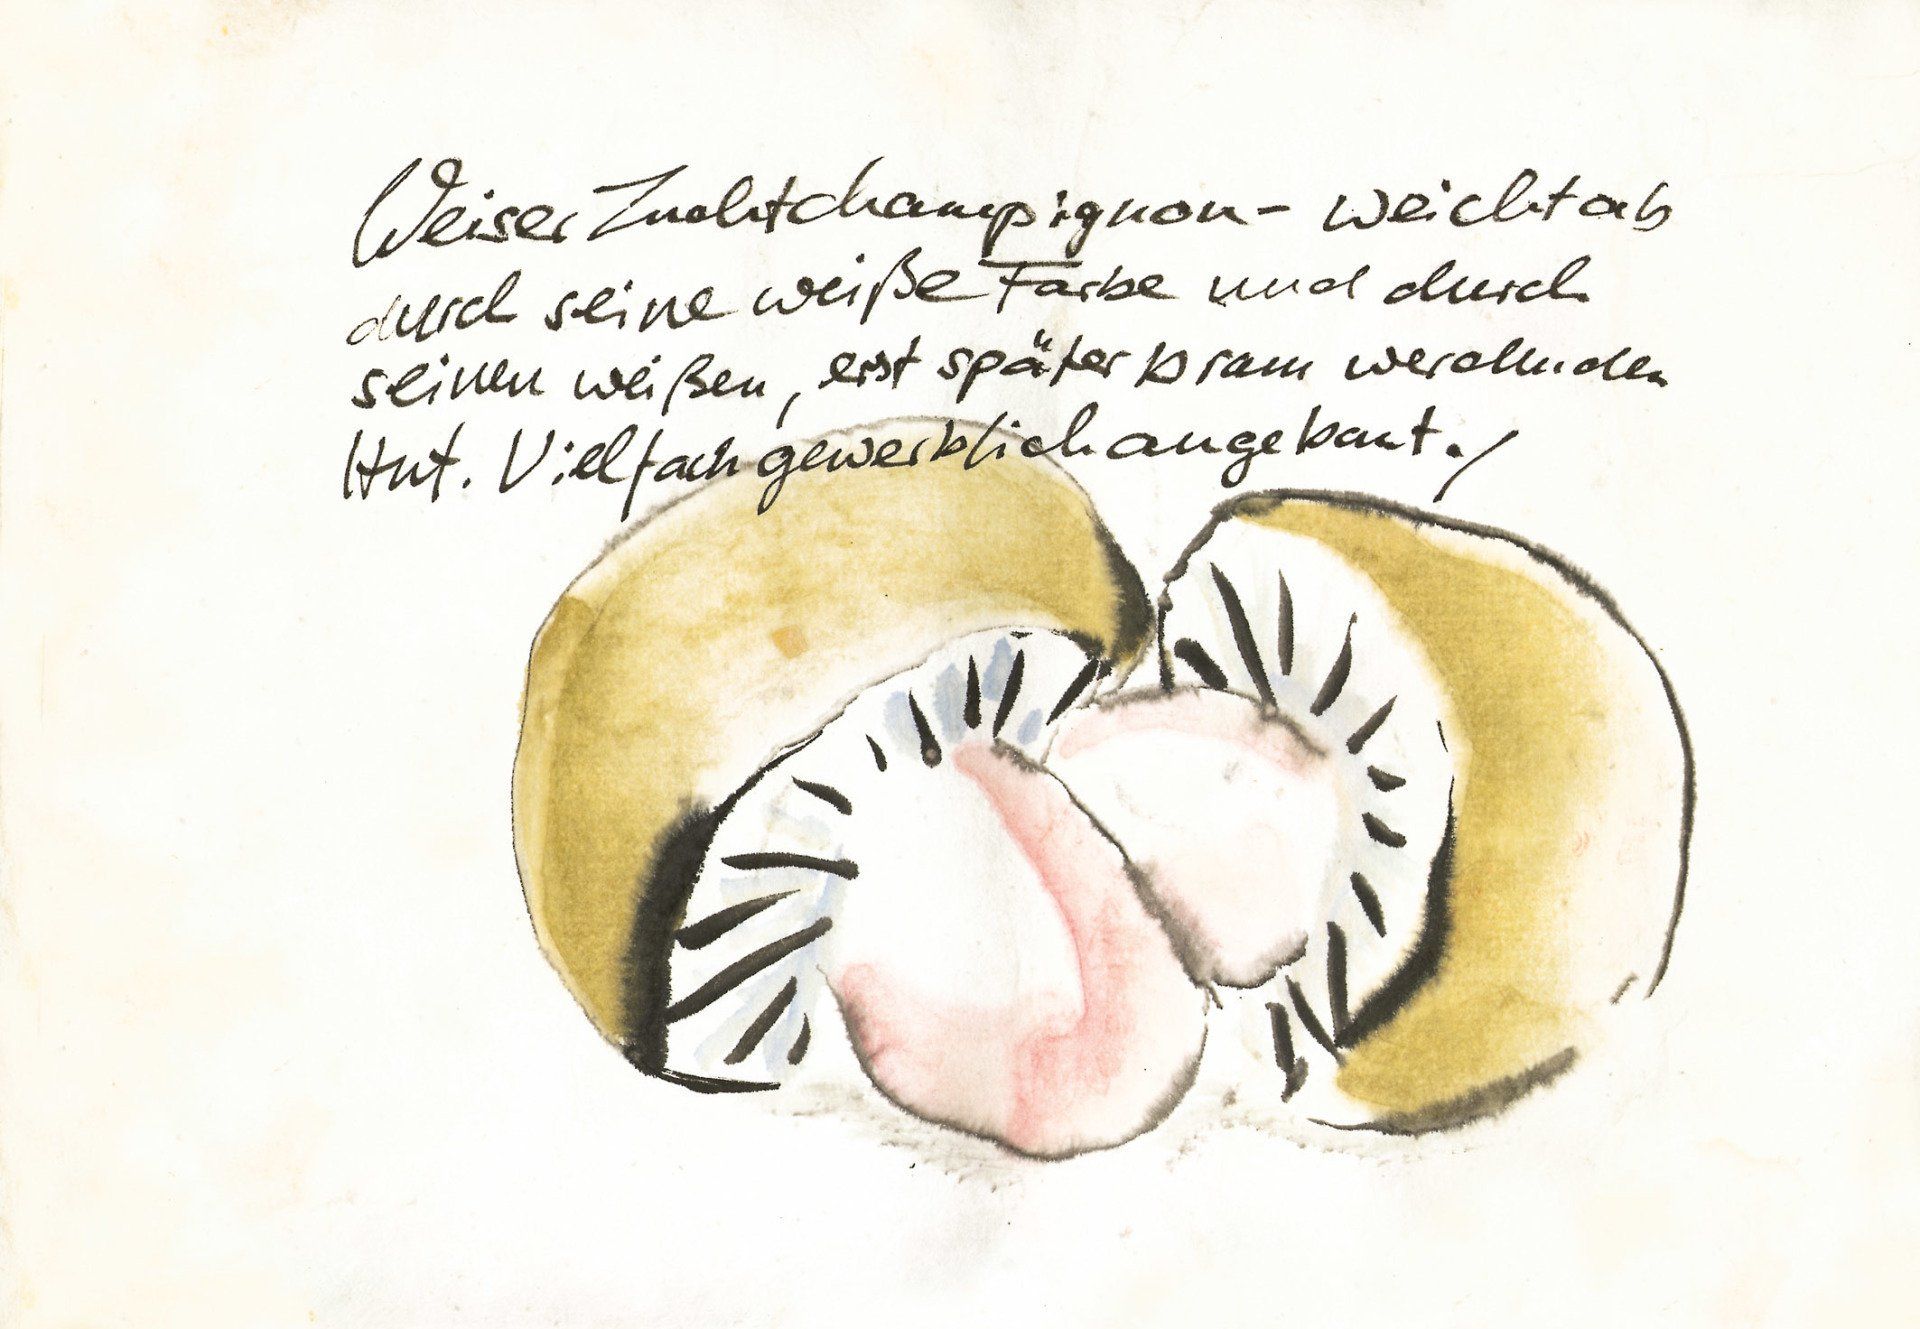 Weiser Zuchtchampignon - weicht ab
durch seine weiße Farbe und durch
seinen weißen, erst später braun werdenden
Hut. Vielfach gewerblich angebaut.